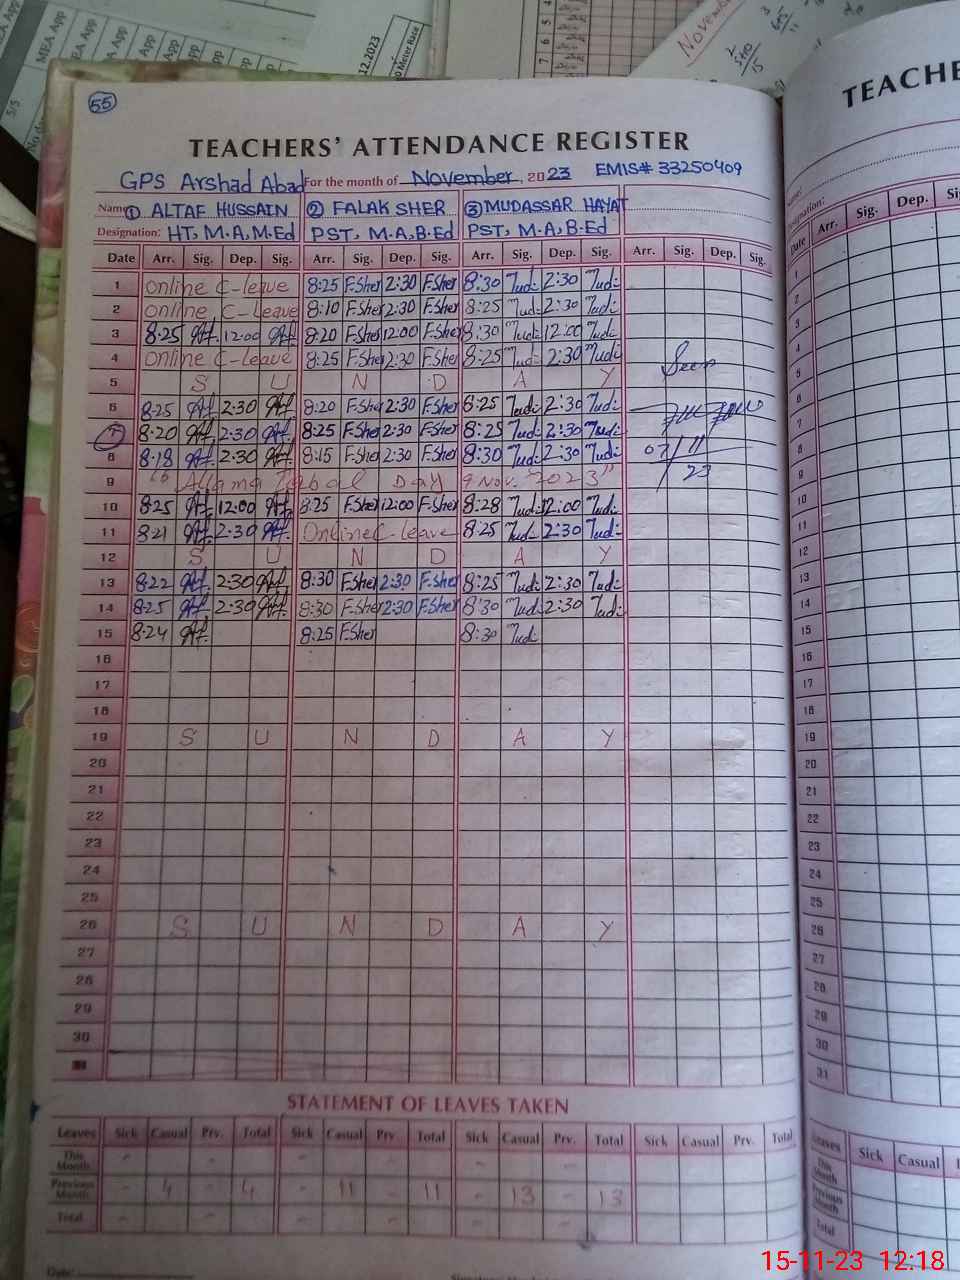 MEA App
MEA App
EA App
App
App
5/5
.12.2023
November
55
TEACHERS' ATTENDANCE REGISTER
GPS Arshad Abad For the month of November, 2023 EMIS# 33250409
Name: ① ALTAF HUSSAIN ② FALAK SHER ③ MUDASSAR HAYAT
Designation: HT, M.A, M.Ed PST, M.A, B.Ed PST, M.A, B.Ed
Date Arr. Sig. Dep. Sig. Arr. Sig. Dep. Sig. Arr. Sig. Dep. Sig. Arr. Sig. Dep. Sig.
1 online C-leave 8:25 F.Sher 2:30 F.Sher 8:30 2:30
2 online C-leave 8:10 F.Sher 2:30 F.Sher 8:25 2:30
3 8:25 12:00 8:20 F.Sher 12:00 F.Sher 8:30 12:00
4 online C-leave 8:25 F.Sher 2:30 F.Sher 8:25 2:30 Seen
5 S U N D A Y
6 8:25 2:30 8:20 F.Sher 2:30 F.Sher 8:25 2:30
7 8:20 2:30 8:25 F.Sher 2:30 F.Sher 8:25 2:30
8 8:18 2:30 8:15 F.Sher 2:30 F.Sher 8:30 2:30 07/11
9 "Allama Iqbal DAY 9 Nov. 2023" 23
10 8:25 12:00 8:25 F.Sher 12:00 F.Sher 8:28 12:00
11 8:21 2:30 Online C-leave 8:25 2:30
12 S U N D A Y
13 8:22 2:30 8:30 F.Sher 2:30 F.Sher 8:25 2:30
14 8:25 2:30 8:30 F.Sher 2:30 F.Sher 8:30 2:30
15 8:24 8:25 F.Sher 8:30
16
17
18
19 S U N D A Y
20
21
22
23
24
25
26 S U N D A Y
27
28
29
30
31
STATEMENT OF LEAVES TAKEN
Leaves Sick Casual Prv. Total Sick Casual Prv. Total Sick Casual Prv. Total Sick Casual Prv. Total
This Month - - - - - -
Previous Month - 4 - 4 - 11 - 11 - 13 - 13
Total - - - - - -
Date:
TEACHE
Designation:
Date Arr. Sig. Dep. Si
1
2
3
4
5
6
7
8
9
10
11
12
13
14
15
16
17
18
19
20
21
22
23
24
25
26
27
28
29
30
31
Leaves Sick Casual
This Month
Previous Month
Total
15-11-23 12:18